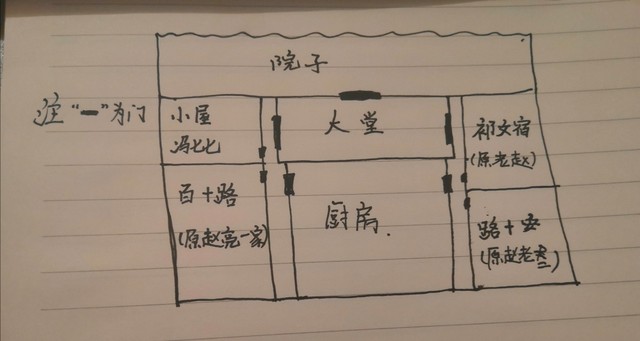 院子
注"━"为门
小屋
冯七七
大堂
祁文宿
(原老赵)
百十路
(原赵亮一家)
厨房.
路十安
(原赵老叁)